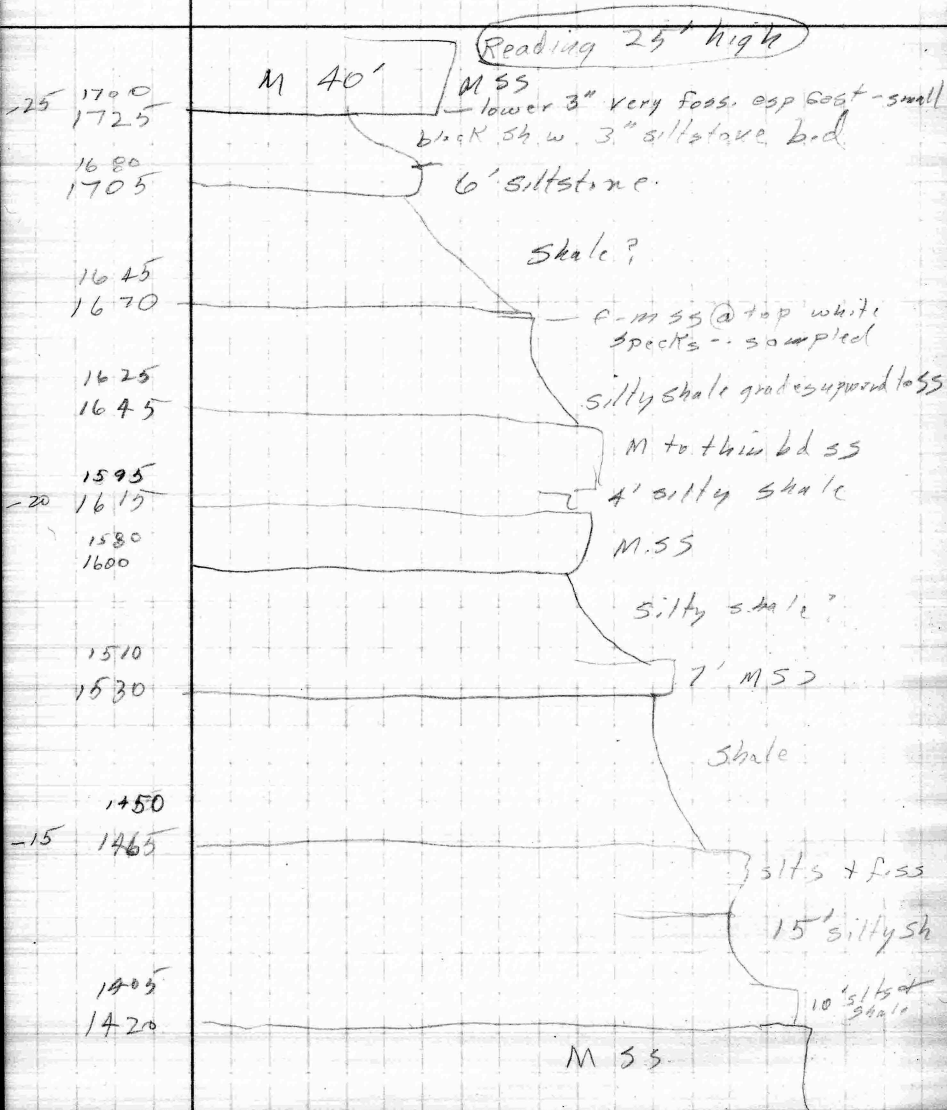 Reading 25' high
M 40'
M SS
-25 1700
1725
lower 3" very foss. esp Gast - small
black sh w. 3" siltstone bed
1680
1705
6' siltstone.
Shale?
1645
1670
f-m ss @ top white
specks -- sampled
1625
1645
silty shale grades upward to SS
M to thin bd SS
1595
-20 1615
4' silty shale
1580
1600
M.SS
silty shale?
1510
1530
7' M SS
Shale
1450
-15 1465
slts + f.ss
15' silty sh
1405
1420
10' slts +
shale
M SS